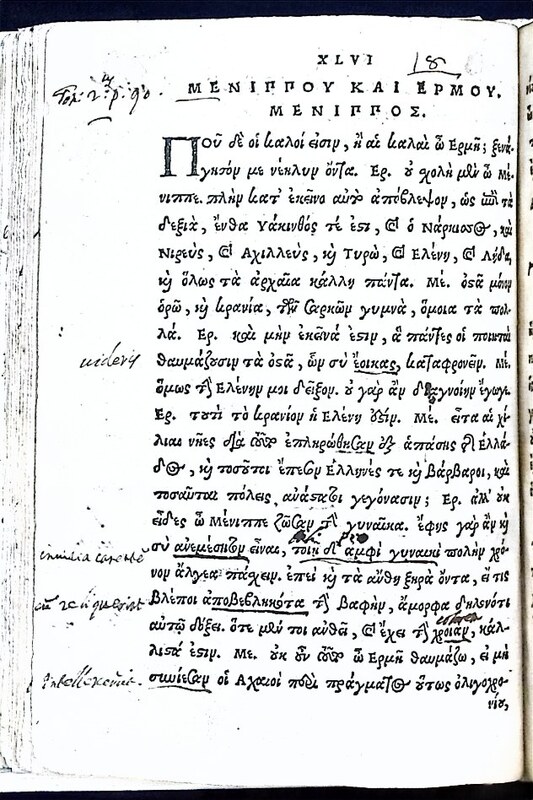 XLVI 18
ΜΕΝΙΠΠΟΥ ΚΑΙ ΕΡΜΟΥ.
ΜΕΝΙΠΠΟΣ.
Ποῦ δὲ οἱ καλοί εἰσιν, ἢ αἱ καλαὶ ὦ Ερμῆ; ξενά-
γησόν με νέηλυν ὄντα. Ερ. οὐ σχολὴ μὲν ὦ Μέ-
νιππε. πλὴν κατ' ἐκεῖνο αὐτὸ ἀπόβλεψον, ὡς ἐπὶ τὰ
δεξιὰ, ἔνθα Υάκινθός τέ ἐστι, καὶ ὁ Νάρκισσος, καὶ
Νιρεὺς, καὶ Αχιλλεὺς, καὶ Τυρὼ, καὶ Ελένη, καὶ Λήδα,
καὶ ὅλως τὰ ἀρχαῖα κάλλη πάντα. Με. ὀστᾶ μόνον
ὁρῶ, καὶ κρανία, τῶν σαρκῶν γυμνὰ, ὅμοια τὰ πολ-
λά. Ερ. καὶ μὴν ἐκεῖνά ἐστιν, ἃ πάντες οἱ ποιηταὶ
videris θαυμάζουσιν τὰ ὀστᾶ, ὧν σὺ ἔοικας, καταφρονεῖν. Με.
ὅμως τὴν Ελένην μοι δεῖξον. οὐ γὰρ ἂν διαγνοίην ἔγωγε.
Ερ. τουτὶ τὸ κρανίον ἡ Ελένη ἐστίν. Με. εἶτα αἱ χί-
λιαι νῆες διὰ τοῦτο ἐπληρώθησαν ἐξ ἁπάσης τῆς Ελλά-
δος, καὶ τοσοῦτοι ἔπεσον Ελληνές τε καὶ Βάρβαροι, καὶ
τοσαῦται πόλεις ἀνάστατοι γεγόνασιν; Ερ. ἀλλ' οὐκ
εἶδες ὦ Μένιππε ζῶσαν τὴν γυναῖκα. ἔφης γὰρ ἂν καὶ
σὺ ἀνεμέσητον εἶναι, τοιῇ δ' ἀμφὶ γυναικὶ πολὺν χρό-
νον ἄλγεα πάσχειν. ἐπεὶ καὶ τὰ ἄνθη ξηρὰ ὄντα, εἴ τις
βλέποι ἀποβεβληκότα τὴν βαφὴν, ἄμορφα δηλονότι
αὐτῷ δόξει. ὅτε μέν τοι ἀνθεῖ, καὶ ἔχει τὴν χροιὰν, κάλ-
λιστά ἐστιν. Με. οὐκ οὖν τοῦτο ὦ Ερμῆ θαυμάζω, εἰ μὴ
συνίεσαν οἱ Αχαιοὶ περὶ πράγματος οὕτως ὀλιγοχρο-
νίου,